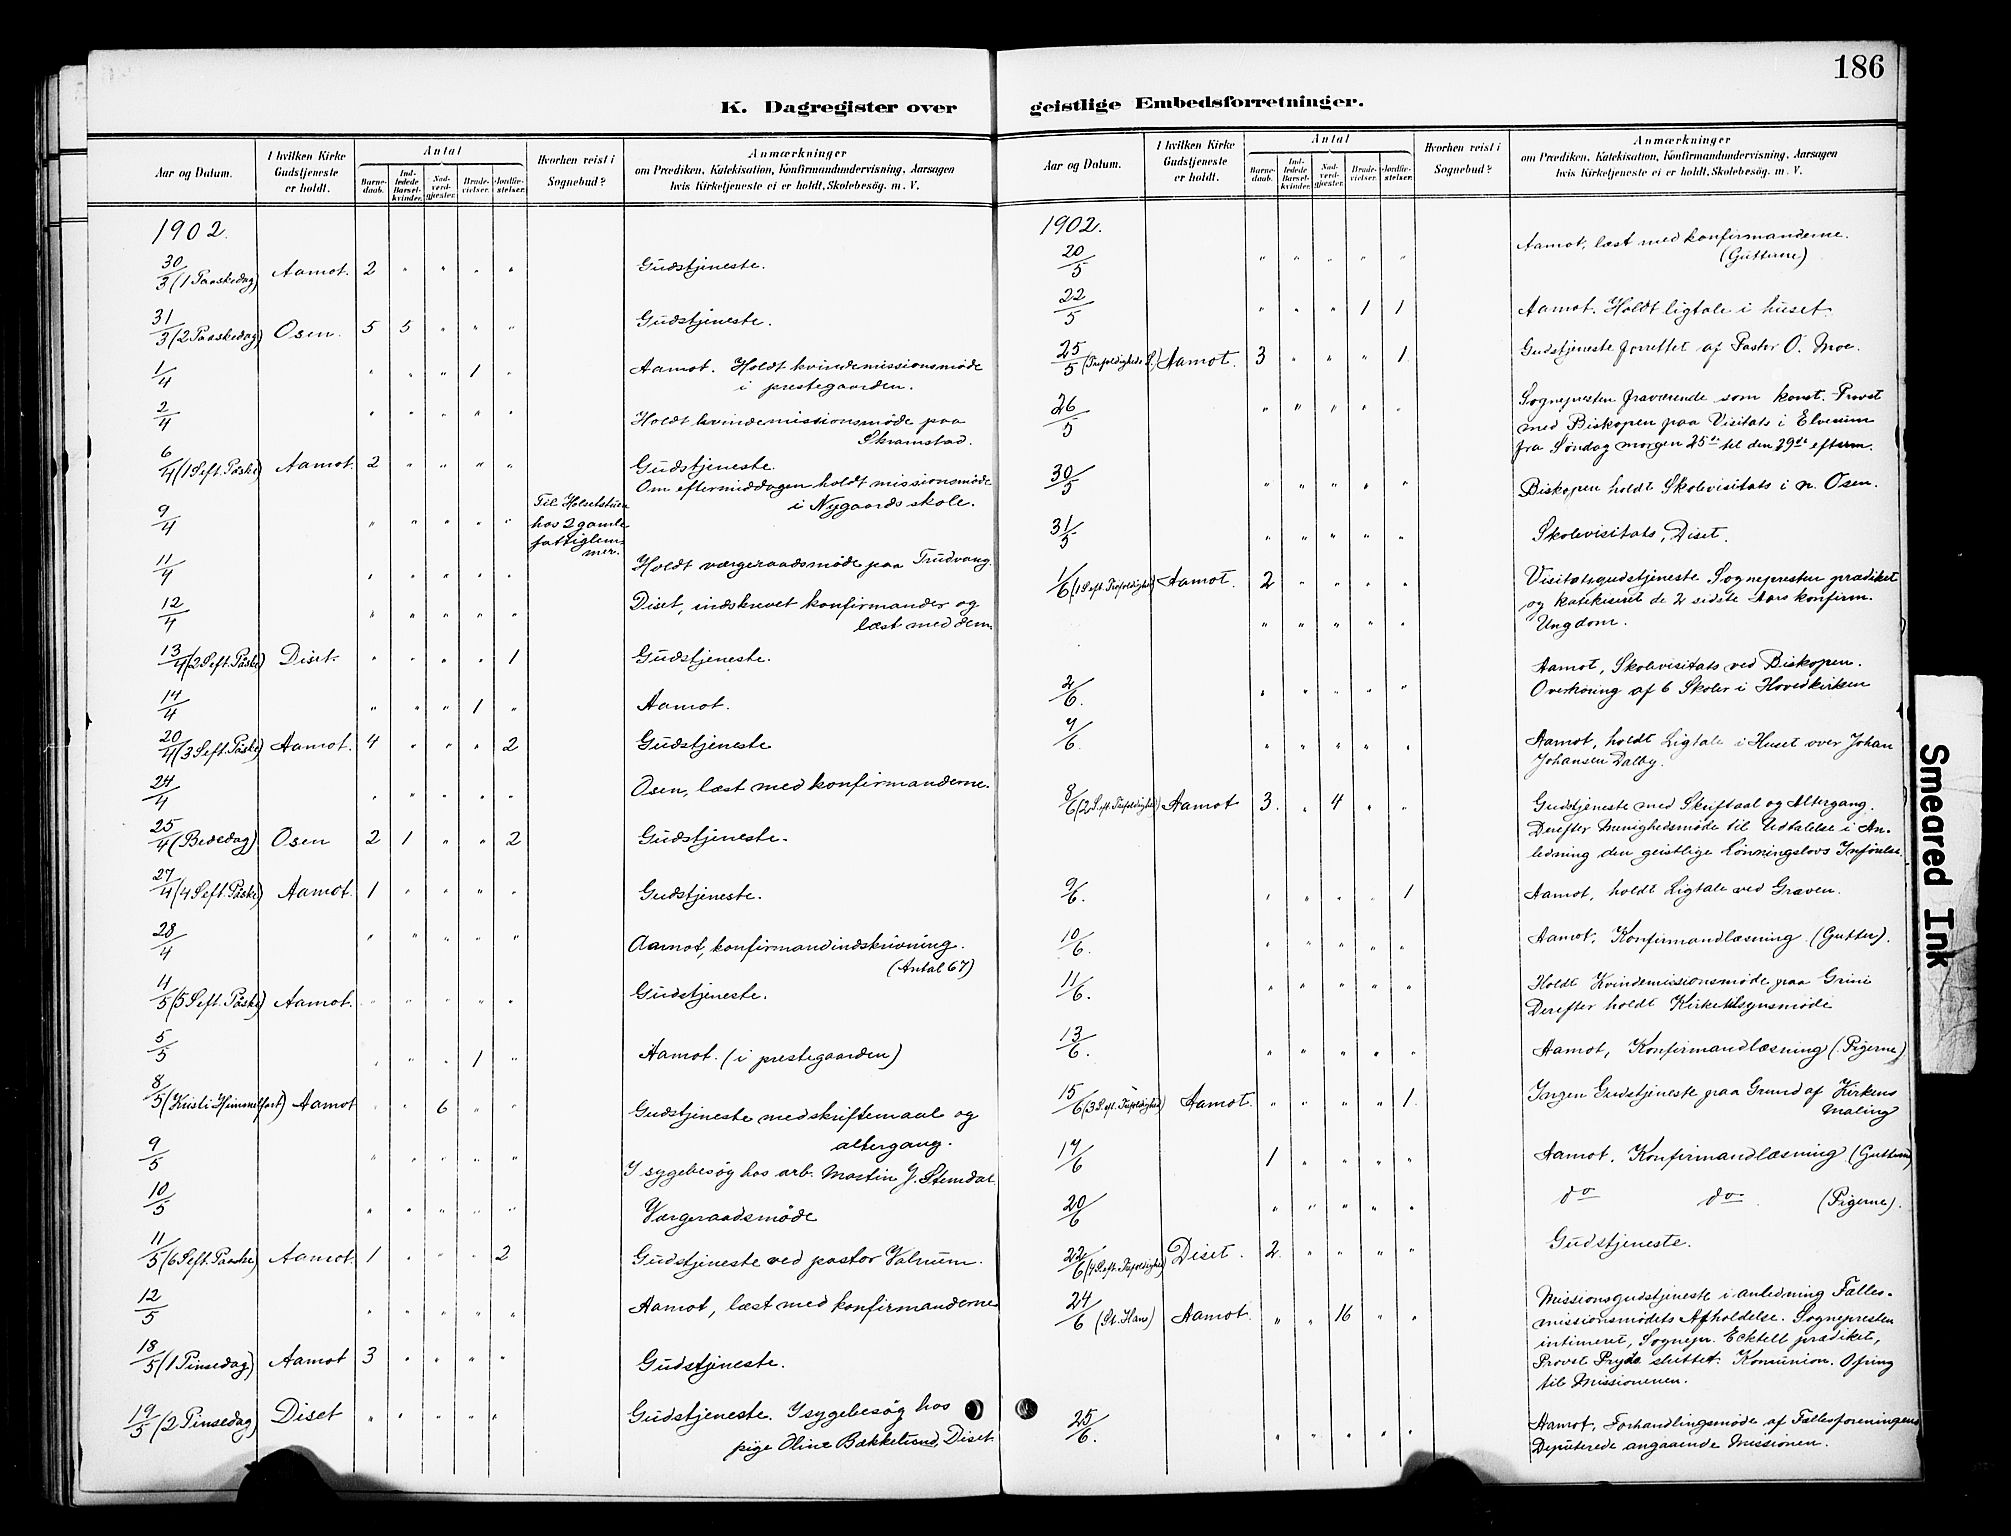 186
K. Dagregister over
geistlige Embedsforretninger.
Aar og Datum.
I hvilken Kirke Gudstjeneste er holdt.
Antal
Barnedaab.
Indledede Barselkvinder.
Nadverdgjæster.
Brudevielser.
Jordfæstelser.
Hvorhen reist i Sognebud?
Anmærkninger
om Prædiken, Katekisation, Konfirmandundervisning, Aarsagen
hvis Kirketjeneste ei er holdt, Skolebesøg. m. V.
1902.
30/3 (1 Paaskedag) Aamot. 2 " " " " Gudstjeneste.
31/3 (2 Paaskedag) Osen. 5 5 " " " Gudstjeneste.
1/4 " " " 1 " Aamot. Holdt kvindemissionsmøde
i prestegaarden.
2/4 " " " " " Holdt kvindemissionsmøde paa
Skramstad.
6/4 (1 S eft. Påske) Aamot. 2 " " " " Gudstjeneste.
Om eftermiddagen holdt missionsmøde
i Nygaards skole.
9/4 " " " " " Til Holsetstuen
hos 2 gamle
fattiglem-
mer.
11/4 " " " " " Holdt værgeraadsmøde paa Trudvang.
12/4 " " " " " Diset, indskrevet konfirmander og
læst med dem.
13/4 (2 S eft. Påske) Diset. " " " " 1 Gudstjeneste.
14/4 " " " 1 " Aamot.
20/4 (3 S eft. Påske) Aamot. 4 " " " 2 Gudstjeneste
24/4 " " " " " Osen, læst med konfirmanderne.
25/4 (Bededag) Osen 2 1 " " 2 Gudstjeneste.
27/4 (4 S eft. Påske) Aamot. 1 " " " " Gudstjeneste.
28/4 " " " " " Aamot, konfirmandindskrivning.
(Antal 67)
4/5 (5 S eft. Påske) Aamot. " " " " " Gudstjeneste.
5/5 " " " 1 " Aamot. (i prestegaarden)
8/5 (Kristi Himmelfart) Aamot " " 6 " " Gudstjeneste med skriftemaal og
altergang.
9/5 " " " " " I sygebesøg hos arb. Martin J. Stemdal.
10/5 " " " " " Værgeraadsmøde
11/5 (6 S eft. Paaske) Aamot. 1 " " " 2 Gudstjeneste ved pastor Valnum.
12/5 " " " " " Aamot, læst med konfirmanderne
18/5 (1 Pinsedag) Aamot 3 " " " " Gudstjeneste.
19/5 (2 Pinsedag) Diset " " " " " Gudstjeneste. I sygebesøg hos
pige Oline Bækkelund, Diset.
Aar og Datum.
I hvilken Kirke Gudstjeneste er holdt.
Antal
Barnedaab.
Indledede Barselkvinder.
Nadverdgjæster.
Brudevielser.
Jordfæstelser.
Hvorhen reist i Sognebud?
Anmærkninger
om Prædiken, Katekisation, Konfirmandundervisning, Aarsagen
hvis Kirketjeneste ei er holdt, Skolebesøg. m. V.
1902.
20/5 " " " " " Aamot, læst med konfirmanderne.
(Guttene)
22/5 " " " 1 1 Aamot. Holdt ligtale i huset.
25/5 (Trefoldigheds S.) Aamot. 3 " " " 1 Gudstjeneste forrettet af Pastor O. Moe.
26/5 " " " " " Sognepresten fraværende som konst. Provst
med Biskopen paa Visitats i Elverum
fra Søndag morgen 25de til den 29de efterm.
30/5 " " " " " Biskopen holdt Skolevisitats i n. Osen.
31/5 " " " " " Skolevisitats, Diset.
1/6 (1 S eft. Trefoldighed) Aamot. 2 " " " " Visitatsgudstjeneste Sognepresten prædiket
og katekiseret de 2 sidste Aars konfirm.
" " " " " Ungdom.
2/6. " " " " " Aamot, Skolevisitats ved Biskopen.
Overhøring af 6 Skoler i Hovedkirken
7/6. " " " " " Aamot, holdt Ligtale i Huset over Johan
Johansen Dalby.
8/6 (2 S eft. Trefoldighed) Aamot 3. " 4 " " Gudstjeneste med Skriftaal og Altergang.
Derefter Menighedsmøde til Udtalelse i An-
ledning den geistlige Lønningslovs Indførelse.
9/6. " " " " 1 Aamot, holdt Ligtale ved Graven.
10/6. " " " " " Aamot, Konfirmandlæsning (Gutter).
11/6. " " " " " Holdt Kvindemissionsmøde paa Grini
Derefter holdt Kirketilsynsmøde
13/6. " " " " " Aamot, Konfirmandlæsning (Pigerne)
15/6 (3 S. eft. Trefoldighed) Aamot. " " " " 1. Ingen Gudstjeneste paa Grund af Kirkens
Maling
17/6 1 " " " " Aamot, Konfirmandlæsning (Guttene)
20/6 " " " " " do do (Pigerne).
22/6 (4 S eft. Trefoldighed) Diset. 2. " " " " Gudstjeneste.
24/6 (St. Hans) Aamot. " " 16 " " Missionsgudstjeneste i anledning Fælles-
missionsmødets Afholdelse. Sognepresten
intimeret, Sognepr. Ecktell prædiket,
Provst Prydz sluttet. Komunion. Ofring
til Missionenen.
25/6. " " " " " Aamot, Forhandlingsmøde af Fællesforeningens
Deputerede angaaende Missionen.
Smeared Ink